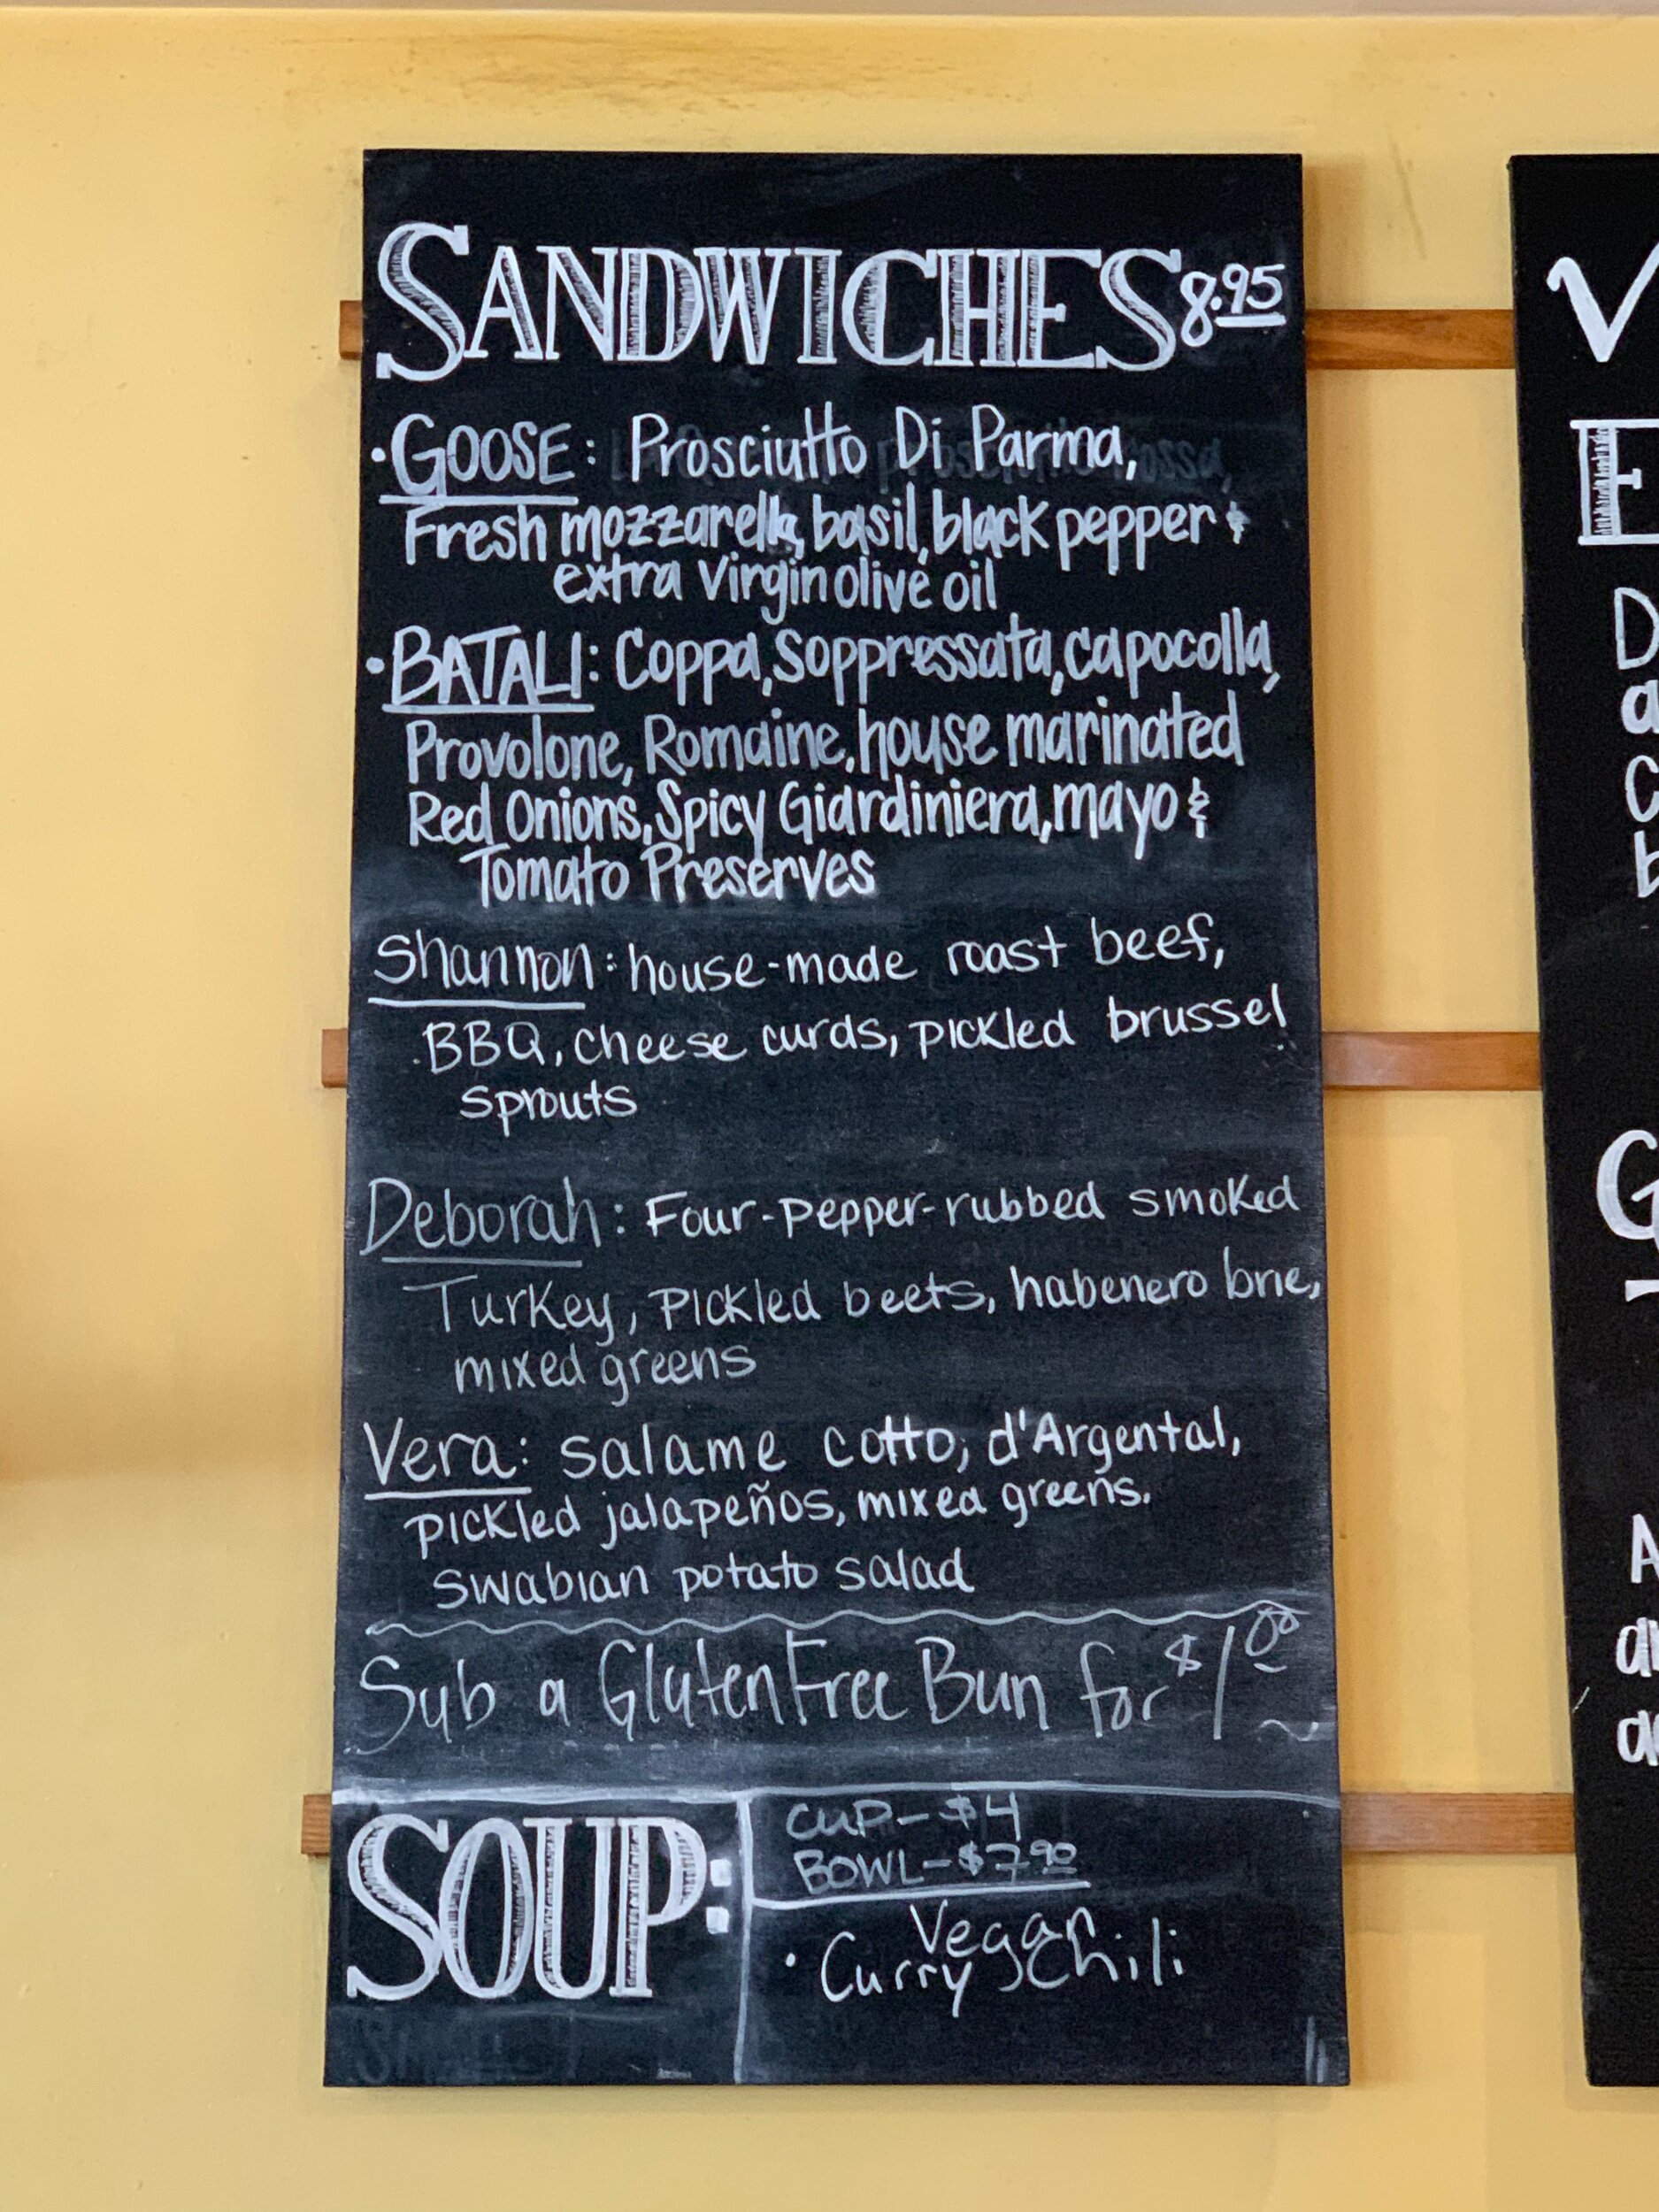 SANDWICHES 8.95
• GOOSE: Prosciutto Di Parma,
Fresh mozzarella, basil, black pepper &
extra virgin olive oil
• BATALI: Coppa, Soppressata, capocolla,
Provolone, Romaine, house marinated
Red Onions, Spicy Giardiniera, mayo &
Tomato Preserves
Shannon: house-made roast beef,
BBQ, cheese curds, pickled brussel
sprouts
Deborah: Four-pepper-rubbed smoked
Turkey, pickled beets, habenero brie,
mixed greens
Vera: salame cotto, d'Argental,
pickled jalapeños, mixed greens.
swabian potato salad
Sub a Gluten Free Bun for $1.00
SOUP:
CUP - $4
BOWL - $7.90
Vegan
• Curry Chili
V
E
D
a
C
b
G
A
a